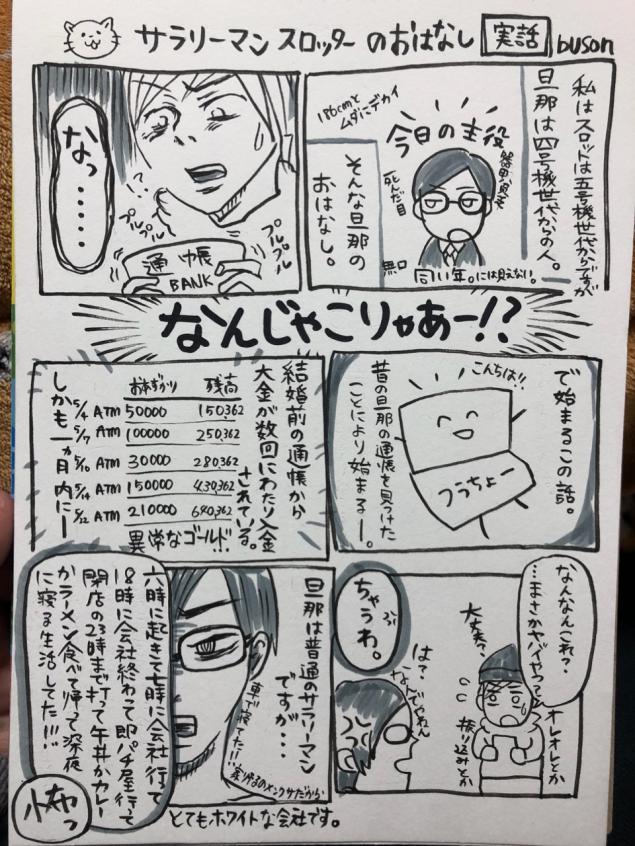 サラリーマンスロッターのおはなし 実話 buson
私はスロットは五号機世代からですが
旦那は四号機世代からの人。
今日の主役
186cmと
ムダにデカイ
死んだ目
無口
同い年。には見えない。
そんな旦那の
おはなし。
なっ……
プルプル
プルプル
通帳
BANK
なんじゃこりゃあー!?
で始まるこの話。
こんちは!!
フうちょー
昔の旦那の通帳を見つけた
ことにより始まるー。
結婚前の通帳から
大金が数回にわたり入金
されている。
お預かり 残高
5/4 ATM 50000 150,362
5/7 ATM 100000 250,362
5/10 ATM 30000 280,362
5/14 ATM 150000 430,362
5/22 ATM 210000 640,362
異常なゴールド!!
しかも一ヵ月内にー
なんなんこれ?
…まさかヤバイやつ?
大丈夫?
オレオレとか
振り込みとか
は?
なんでやねん
ちゃうわ。
旦那は普通のサラリーマン
ですが…
車で寝てた!!!
家帰るのメンクサだから
六時に起きて七時に会社行って
18時に会社終わって即パチ屋行って
閉店の23時まで打って牛丼かカレー
かラーメン食べて帰って深夜
に寝る生活してた!!!
とてもホワイトな会社です。